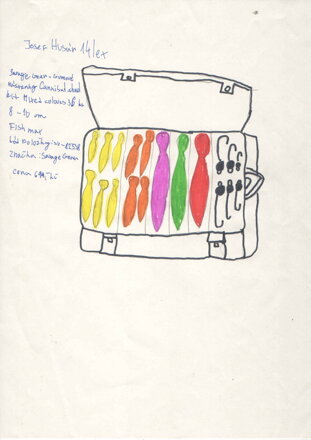 Josef Husár 14/ex
Savage Gear - Gumové
Cannibal shad
kit Mixed colours 36 ks
8 - 10 cm
Fish max
kód položky: sv-
Značka: Savage Gear
cena 699,- kč